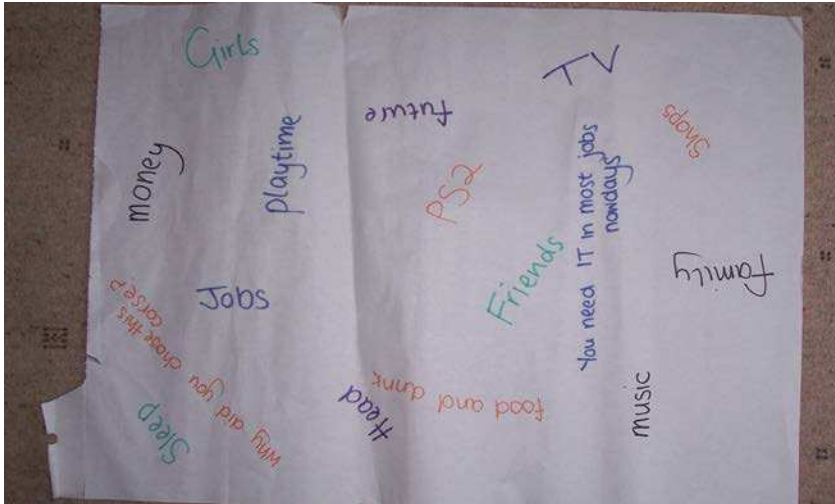 Girls
TV
future
Shops
money
playtime
PS2
You need IT in most jobs
nowdays
Friends
family
Jobs
Why did you chose this
corse?
Head
food and drink
music
Sleep